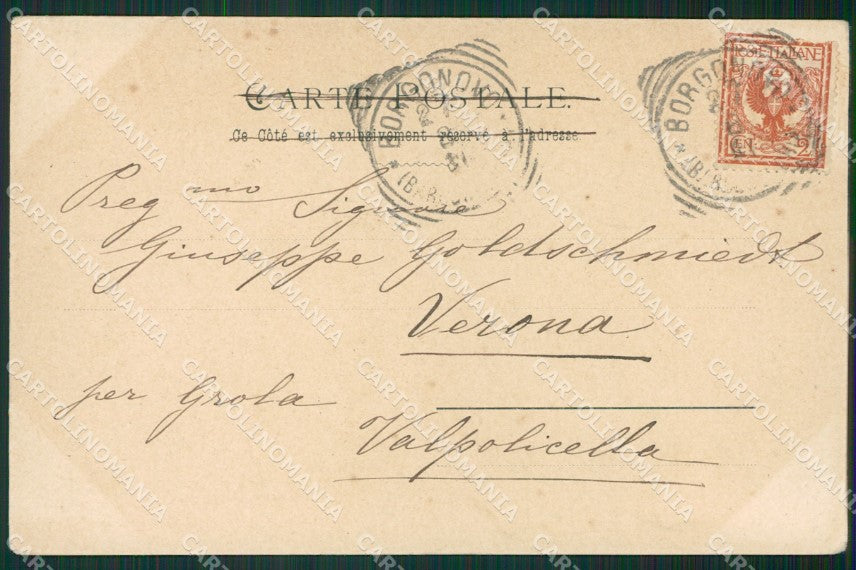 CARTE POSTALE.
Ce Côté est exclusivement réservé à l'adresse
BORGONOVO
POSTE ITALIANE
CENT. 2
BORGONOVO
Preg mo Signore
Giuseppe Goldschmiedt
Verona
per Grola
Valpolicella
CARTOLINOMANIA